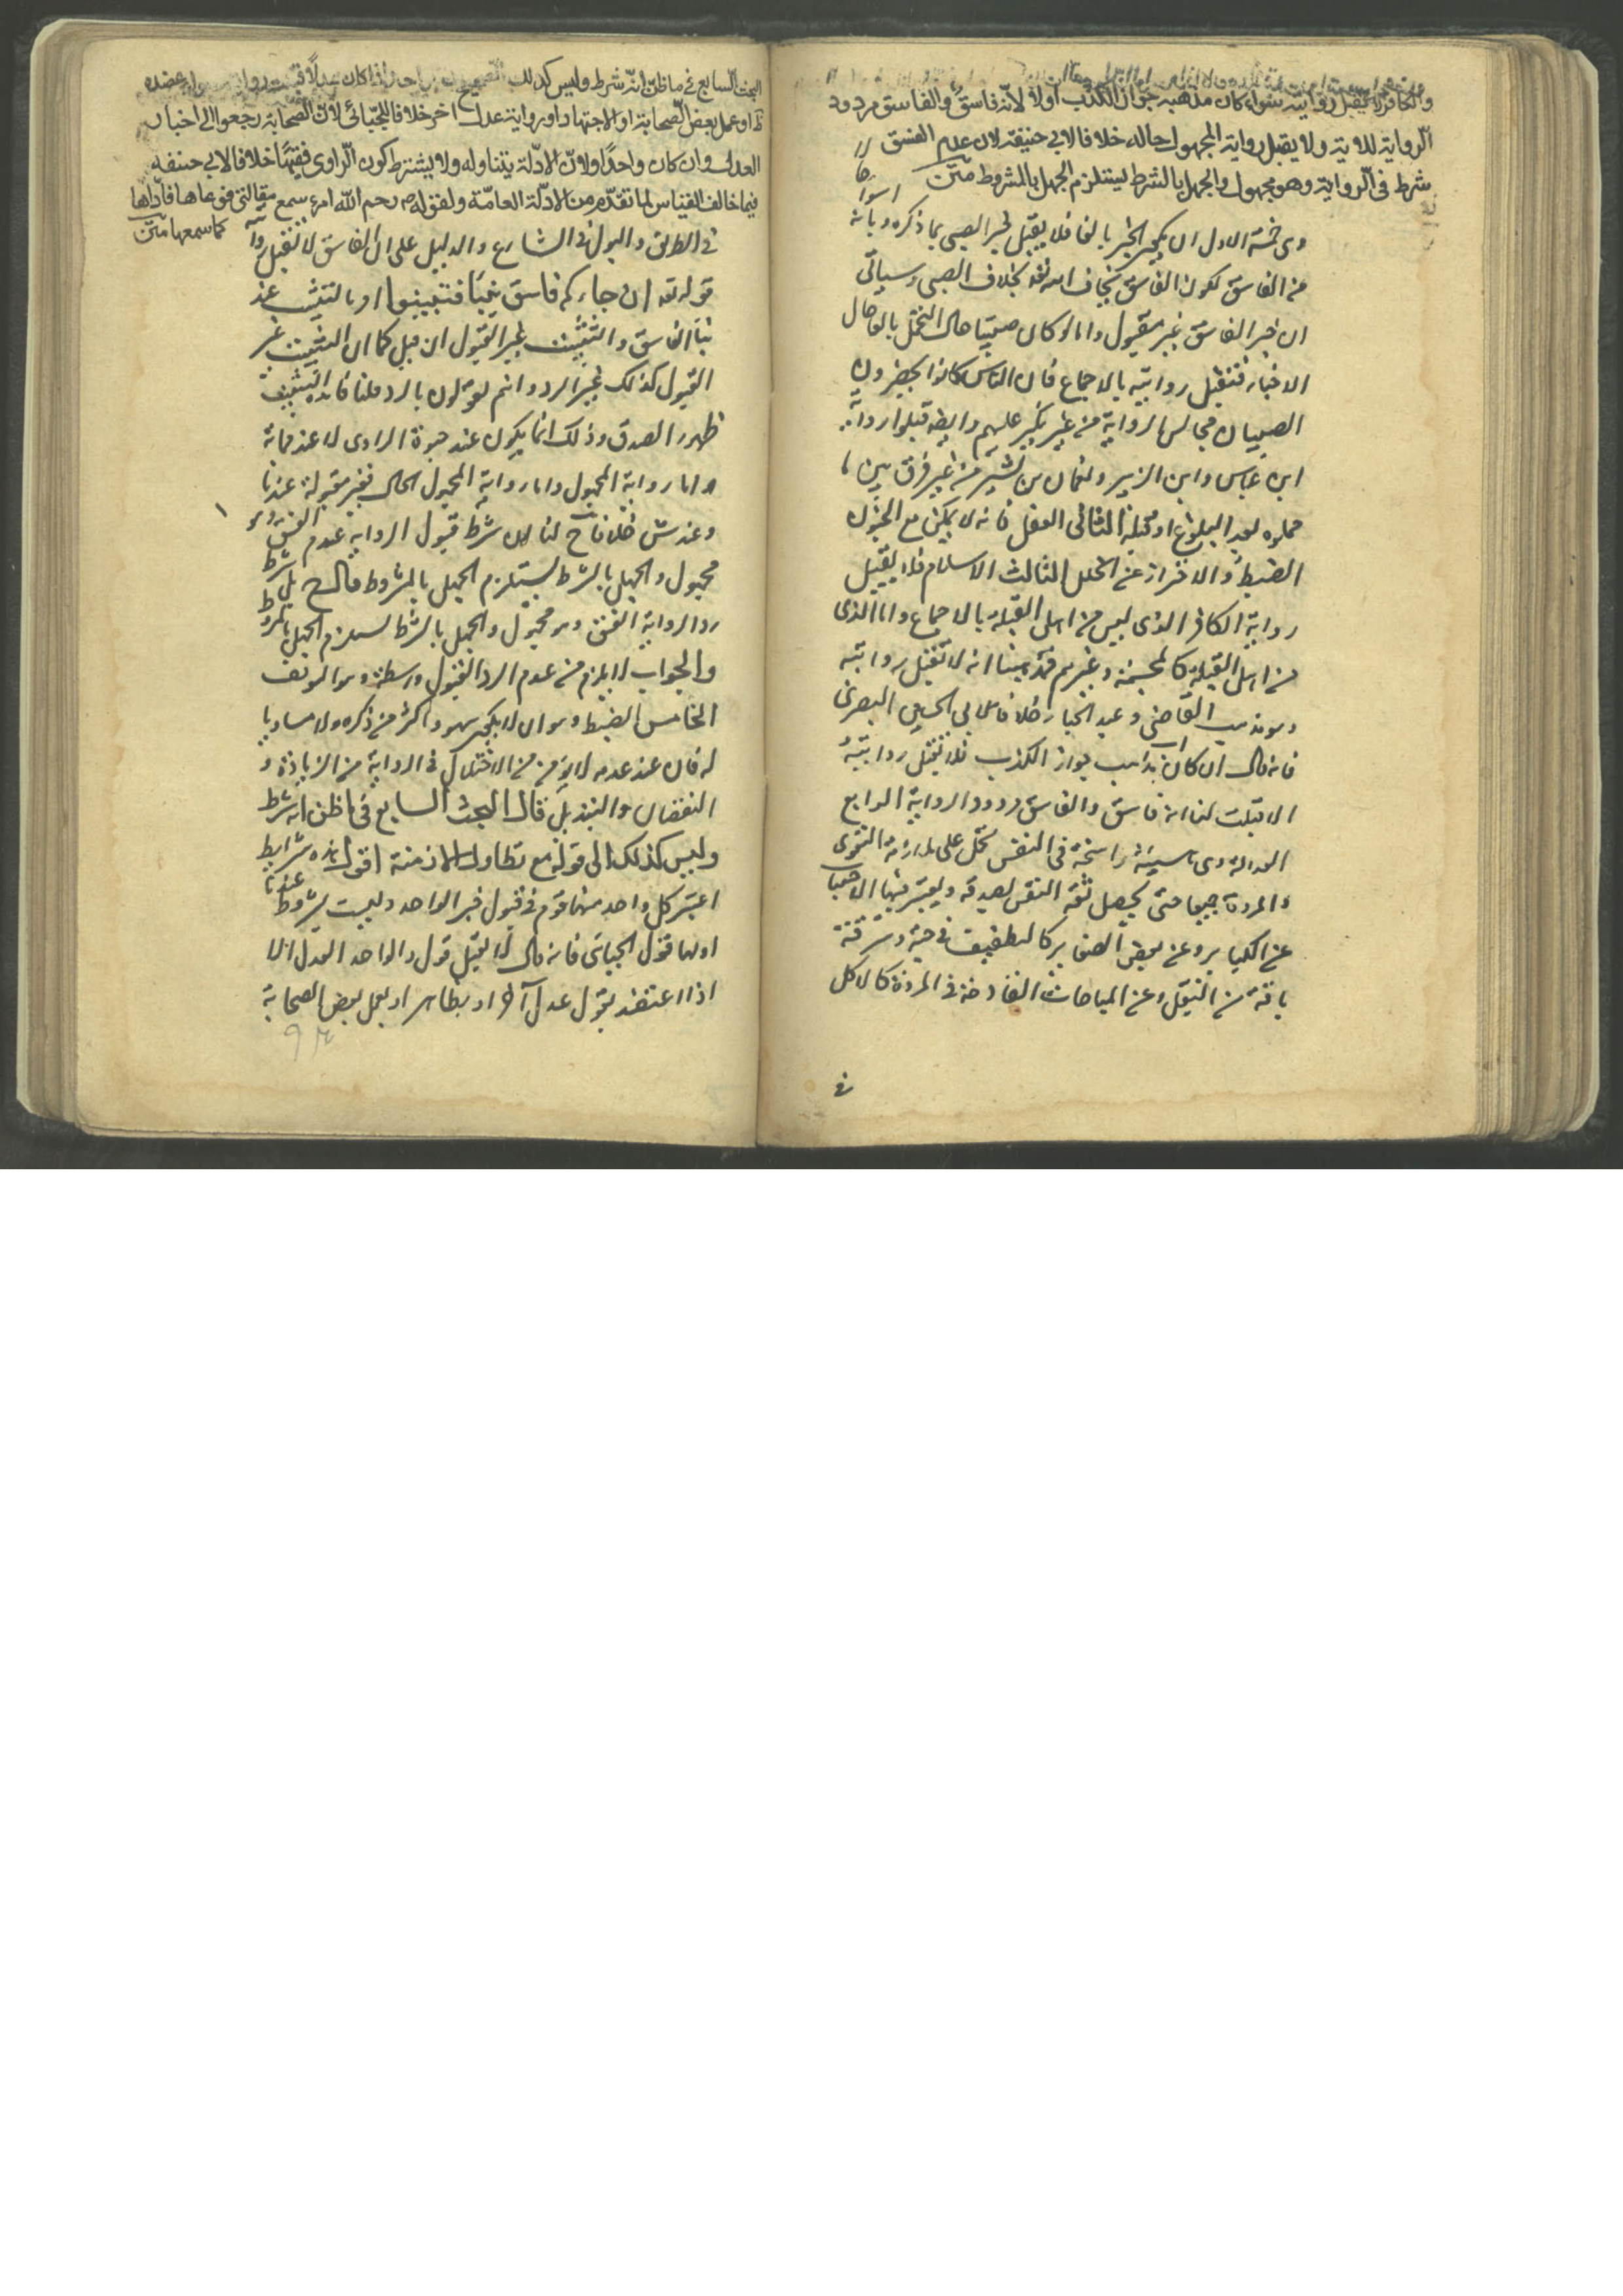 والكافر لا تقبل روايته سواء كان مذهبه جواز الكذب اولا لانّه فاسق والفاسق مردود
الرواية للاية ولا يقبل رواية المجهول حاله خلافا لابي حنيفة لان عدم الفسق
شرط في الرواية وهو مجهول والجهل بالشرط يستلزم الجهل بالمشروط متن
وهي خمسة الاول ان يكون المخبر بالغا فلا يقبل خبر الصبي بما ذكره وبانه
من الفاسق لكون الفاسق يخاف الله تعه بخلاف الصبي وسياتي
ان خبر الفاسق غير مقبول واما لو كان صبيا حال التحمل بالغا حال
الاخبار فتقبل روايته بالاجماع فان الناس كانوا يحضرون
الصبيان مجالس الرواية من غير نكير عليهم وايضا قبلوا رواية
ابن عباس وابن الزبير ونعمان بن بشير من غير فرق بين ما
حملوه بعد البلوغ او قبله الثاني العقل فانه لا يمكن مع الجنون
الضبط والاحتراز عن الخلل الثالث الاسلام فلا يقبل
رواية الكافر الذي ليس من اهل القبلة بالاجماع واما الذي
من اهل القبلة كالمجسمة وغيرهم فمذهبنا انه لا تقبل روايته
وهو مذهب القاضي وعبد الجبار خلافا لابي الحسين البصري
فانه قال ان كان مذهب جواز الكذب فلا تقبل روايته
الا قبلت لنا انه فاسق والفاسق مردود الرواية الرابع
العدالة وهي هيئة راسخة في النفس تحمل على ملازمة التقوى
والمروة جميعا حتى يحصل ثقة النفس بصدقه ويعتبر فيها الاجتناب
عن الكباير وعن بعض الصغاير كالتطفيف في حبة وسرقة
باقة من البقل وعن المباحات القادحة في المروة كالاكل
في
البحث السابع في ما ظن انه شرط وليس كذلك
او عمل بعض الصحابة او الاجتهاد او رواية عدل اخر خلافا للجبائي لان الصحابة رجعوا الى اخبار
العدل وان كان واحدا ولان الادلة يتناوله ولا يشترط كون الراوي فقيها خلافا لابي حنيفه
فيما خالف القياس لما تقدم من الادلة العامة ولقوله ص رحم الله امرء سمع مقالتي فوعاها فادّاها
كما سمعها متن
في الطريق والبول في الشارع والدليل على ان الفاسق لا تقبل روا
قوله تعه ان جاءكم فاسق بنبأ فتبينوا اوبالتثبت عند
نبأ الفاسق والتثبت غير القبول ان قبل كما ان التثبت غير
القبول كذلك غير الرد وانتم تقولون بالرد قلنا فايدة التثبت
ظهور الصدق وذلك انما يكون عند حيوة الراوي لا عند مماته
واما رواية المجهول واما رواية المجهول الحال فغير مقبولة عندنا
وعند ش خلافا ح لنا ان شرط قبول الرواية عدم الفسق وهو
مجهول والجهل بالشرط يستلزم الجهل بالمشروط قال ح بل شرط
رد الرواية الفسق وهو مجهول والجهل بالشرط يستلزم الجهل بالمشروط
والجواب لا يلزم من عدم الرد القبول واسطة وهو التوقف
الخامس الضبط وهو ان لا يكون سهوه اكثر من ذكره ولا مساويا
له فان عند عدمه لا يؤمن من الاختلال في الرواية من الزيادة و
النقصان والتبديل قال البحث السابع في ما ظن انه شرط
وليس كذلك الى قوله مع تطاول الازمنة اقول هذه شرايط
اعتبر كل واحد منها قوم في قبول خبر الواحد وليست بشروط عندنا
اولها قول الجبائي فانه قال لا تقبل قول الواحد العدل الا
اذا اعتضد بقول عدل آخر او بظاهر او بعمل بعض الصحابة